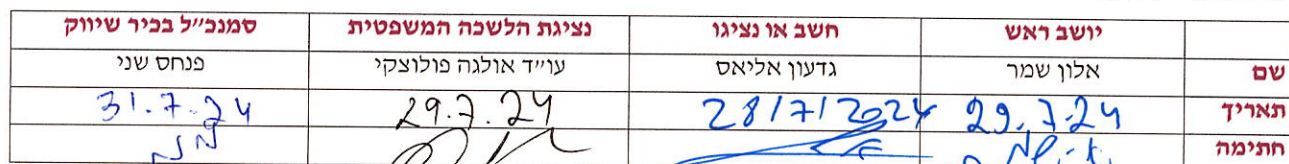 יושב ראש חשב או נציגו נציגת הלשכה המשפטית סמנכ״ל בכיר שיווק
שם אלון שמר גדעון אליאס עו״ד אולגה פולוצקי פנחס שני
תאריך 29.7.24 28/7/2024 29.7.24 31.7.24
חתימה